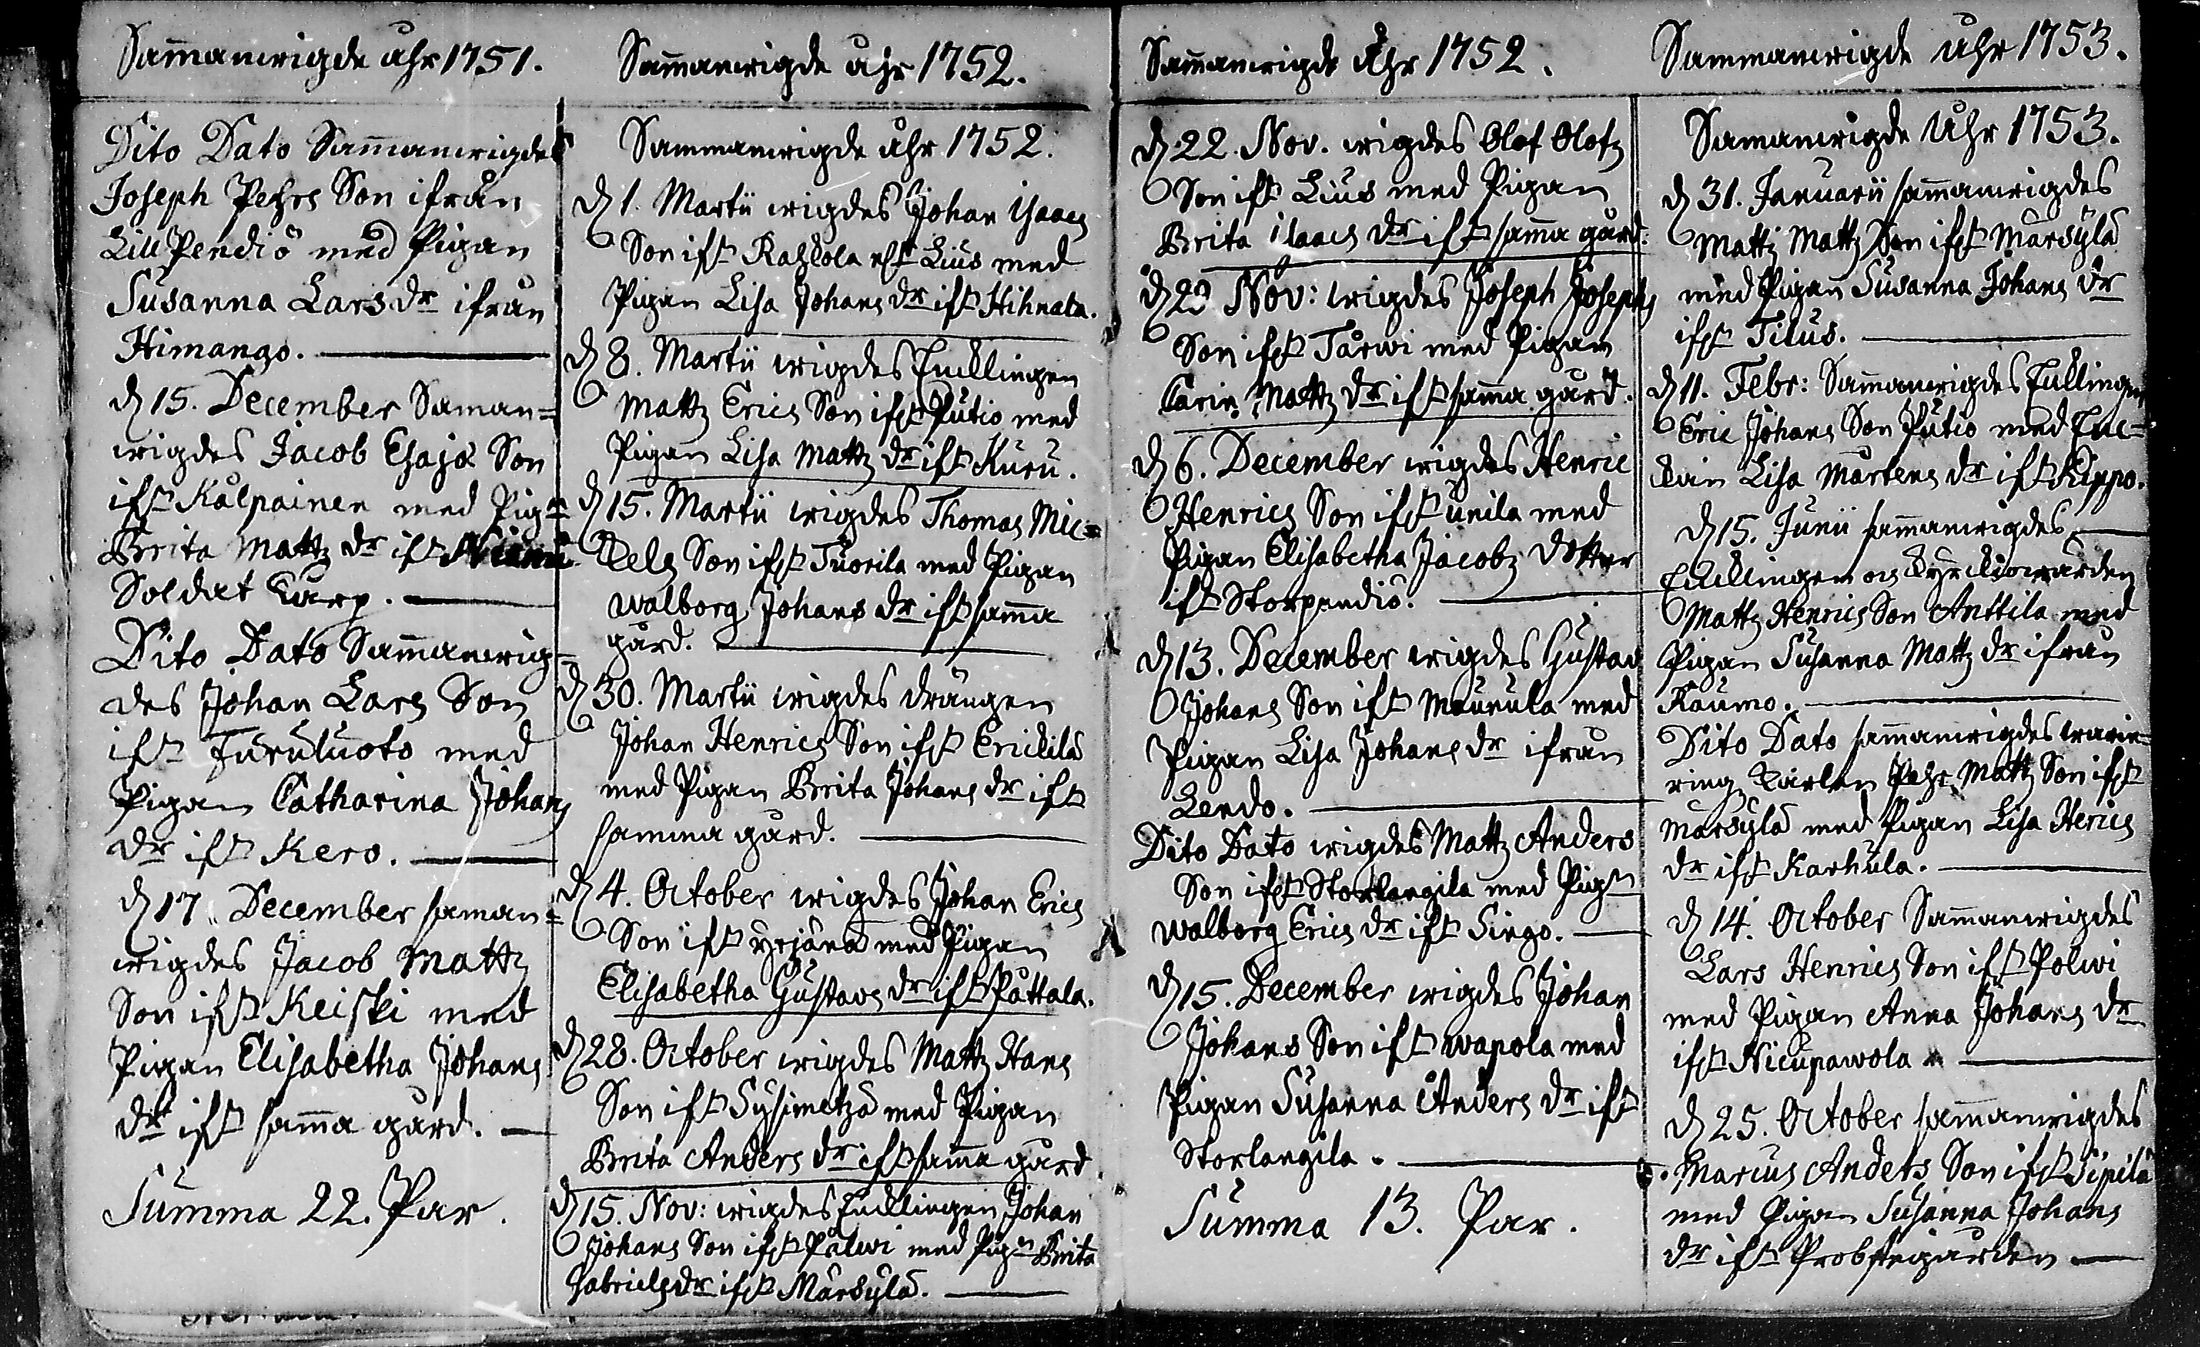 Sam̃anwigde åhr 1751.
Dito Dato Sam̃anwigdes
Joseph Pehrs Son ifrån
Lill Pendiö med Pigan
Susanna Lars dr ifrån
Himango.
D 15. December Saman=
wigdes Jacob Esajæ Son
ifr Kålpainen med Pign
Brita Mattz dr ifr
Soldat Karp.
Dito Dato Sam̃anwig-
des Johan Lars Son
ifr Furuluoto med
Pigan Catharina Johans
dr ifr Kero.
D 17. December saman=
wigdes Jacob Mattz
Son ifr Keiski med
Pigan Elisabetha Johans
dr ifr sam̃a gård.
Summa 22. Par.
Sam̃anwigde åhr 1752.
Sammanwigde åhr 1752.
D 1. Martii wigdes Johan Isaacs
Son ifr Kahlola eft Lius med
Pigan Lisa Johans dr ifr Hihnala.
D 8. Martii wigdes Enklingen
Mattz Erics Son ifr Putio med
Pigan Lisa Mattz dr ifr Kuru.
D 15. Martii wigdes Thomas Mic=
kels Son ifr Tuorila med Pigan
Walborg Johans dr ifr sam̃a
gård.
D 30. Martii wigdes drängen
Johan Henrics Son ifr Erickilä
med Pigan Brita Johans dr ifr
samma gård.
D 4. October wigdes Johan Erics
Son ifr Yrjänä med Pigan
Elisabetha Gustavs dr ifr Påttala.
D 28. October wigdes Mattz Hans
Son ifr Sysimetzä med Pigan
Brita Anders dr ifr sam̃a gård.
D 15. Nov: wigdes Encklingen Johan
Johans Son ifr Pålwi med Pign Brita
Gabriels dr ifr Marsylä.
Sam̃anwigde Åhr 1752.
D 22. Nov. wigdes Olof Olofs
Son ifr Lius med Pigan
Brita Isaacs dr ifr sam̃a gård.
D 29 Nov: wigdes Joseph Josephs
Son ifr Tårwi med Pigan
Carin Mattz dr ifr sam̃a gård.
D 6. December wigdes Henric
Henrics Son ifr Unila med
Pigan Elisabetha Jacobs dotter
ifr Storpendiö.
D 13. December wigdes Gustav
Johans Son ifr Maunula med
Pigan Lisa Johans dr ifrån
Lendo.
Dito Dato wigdes Mattz Anders
Son ifr Storlangila med Pign
Walborg Erics dr ifr Singo.
D 15. December wigdes Johan
Johans Son ifr Wapola med
Pigan Susanna Anders dr ifr
Storlangila.
Summa 13. Par.
Sammanwigde Åhr 1753.
Samanwigde Åhr 1753.
D 31. Januarii sam̃anwigdes
Mattz Mattz Son ifr Marsylä
med Pigan Susanna Johans dr
ifr Tilus.
D 11. Febr: Sam̃anwigdes Enklingen
Eric Johans Son Putio med Enc=
kian Lisa Mårtens dr ifr Kippo.
D 15. Junii sam̃anwigdes
Encklingen och Kyrckiowärden
Mattz Henrics Son Anttila med
Pigan Susanna Mattz dr ifrån
Raumo.
Dito Dato sam̃anwigdes
Pehr Mattz Son ifr
Marsylä med Pigan Lisa Herics
dr ifr Karhula.
D 14. October Sam̃anwigdes
Lars Henrics Son ifr Pölwi
med Pigan Anna Johans dr
ifr Nicupawola
D 25. October sam̃anwigdes
Marcus Anders Son ifr Sipilä
med Pigan Susanna Johans
dr ifr Probstegården